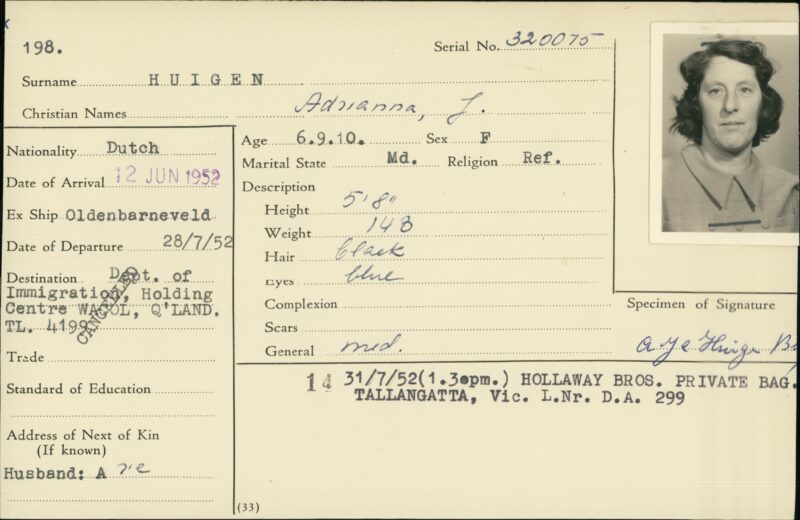 198.
Serial No. 320075
Surname HUIGEN
Christian Names Adrianna, J.
Nationality Dutch
Date of Arrival 12 JUN 1952
Ex Ship Oldenbarneveld
Date of Departure 28/7/52
Destination Dept. of
Immigration, Holding
Centre WACOL, Q'LAND.
TL. 4199
CANCELLED
Trade
Standard of Education
Address of Next of Kin
(If known)
Husband: A
Age 6.9.10. Sex F
Marital State Md. Religion Ref.
Description
Height 5'8"
Weight 143
Hair black
Eyes blue
Complexion
Scars
General med.
Specimen of Signature
14 31/7/52(1.30pm.) HOLLAWAY BROS. PRIVATE BAG.
TALLANGATTA, Vic. L.Nr. D.A. 299
(33)